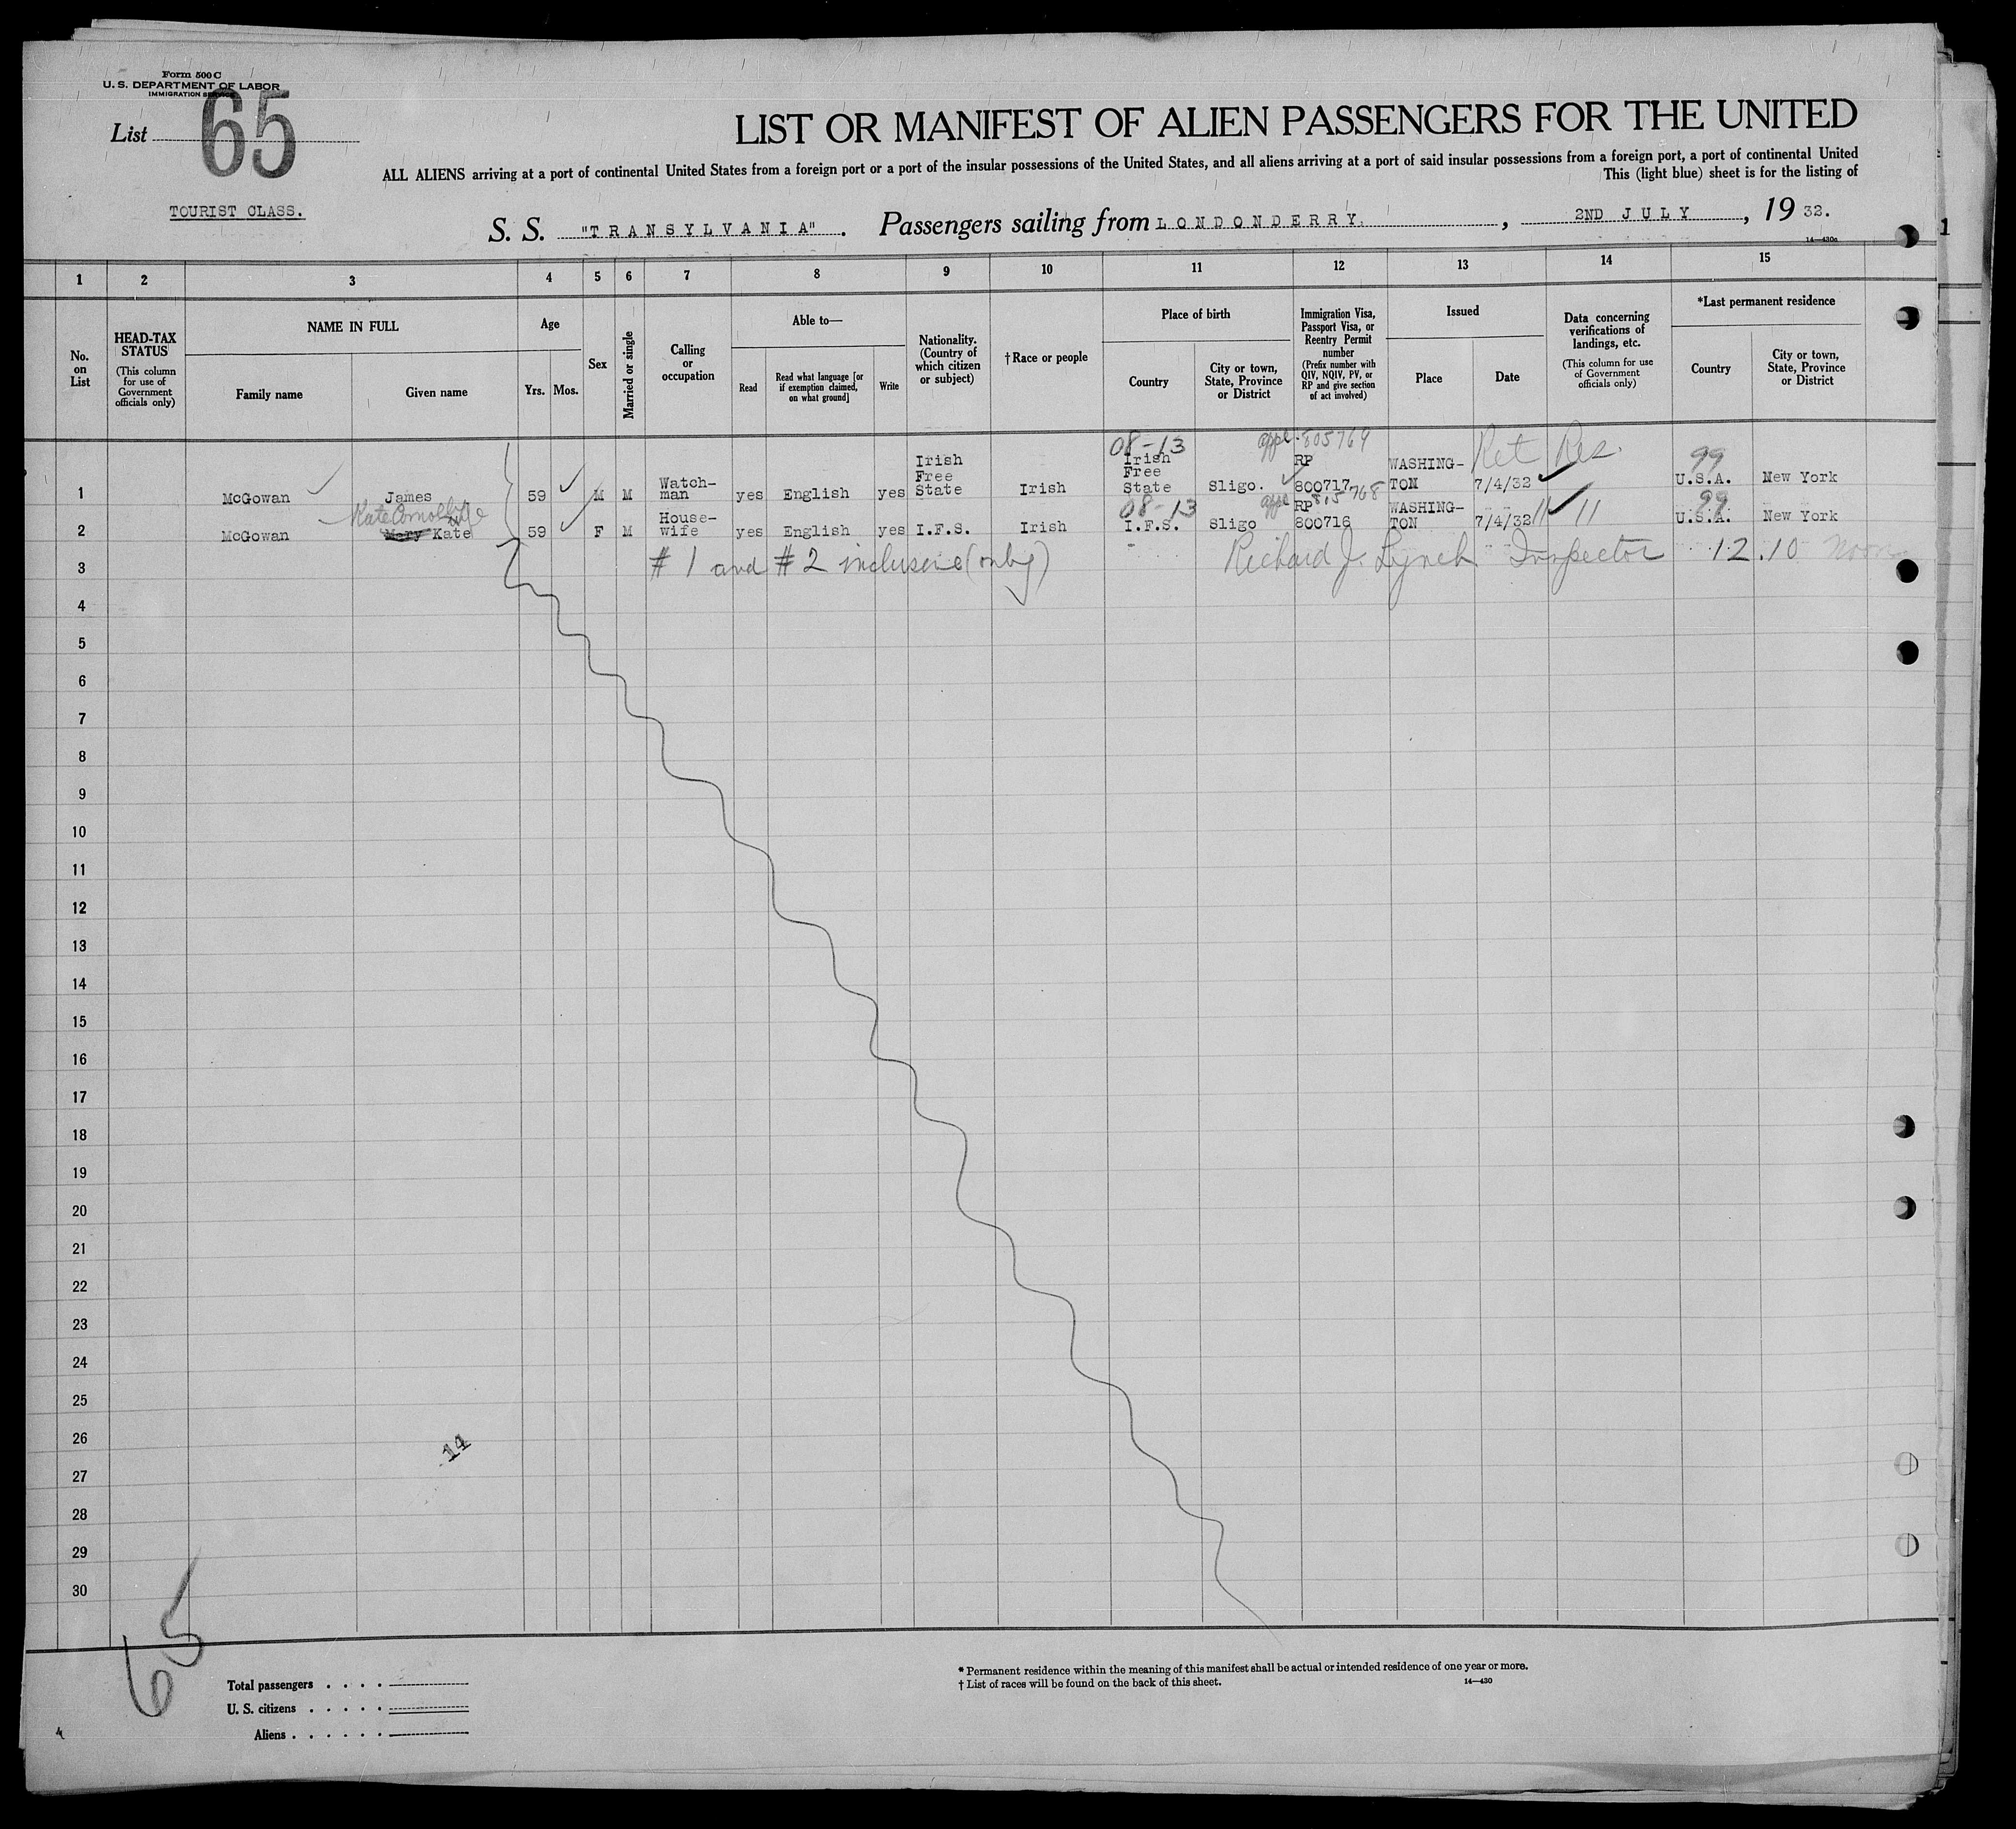 Form 500 C
U. S. DEPARTMENT OF LABOR
IMMIGRATION SERVICE
List 65
LIST OR MANIFEST OF ALIEN PASSENGERS FOR THE UNITED
ALL ALIENS arriving at a port of continental United States from a foreign port or a port of the insular possessions of the United States, and all aliens arriving at a port of said insular possessions from a foreign port, a port of continental United
This (light blue) sheet is for the listing of
TOURIST CLASS.
S. S. "TRANSYLVANIA". Passengers sailing from LONDONDERRY. , 2ND JULY , 1932.
14—430a
1 2 3 4 5 6 7 8 9 10 11 12 13 14 15
No. on List
HEAD-TAX STATUS
(This column for use of Government officials only)
NAME IN FULL
Family name
Given name
Age
Yrs. Mos.
Sex
Married or single
Calling or occupation
Able to—
Read
Read what language [or if exemption claimed, on what ground]
Write
Nationality. (Country of which citizen or subject)
†Race or people
Place of birth
Country
City or town, State, Province or District
Immigration Visa, Passport Visa, or Reentry Permit number
(Prefix number with QIV, NQIV, PV, or RP and give section of act involved)
Issued
Place
Date
Data concerning verifications of landings, etc.
(This column for use of Government officials only)
*Last permanent residence
Country
City or town, State, Province or District
08-13 appl. 805769 Ret Res. 99
1 McGowan James 59 M M Watch-man yes English yes Irish Free State Irish Irish Free State Sligo. RP 800717 WASHING-TON 7/4/32 U.S.A. New York
Kate 08-13 appl 99
2 McGowan Mary Kate 59 F M House-wife yes English yes I.F.S. Irish I.F.S. Sligo RP 800716 WASHING-TON 7/4/32 11 11 U.S.A. New York
3 # 1 and # 2 inclusive (only) Richard J. Lynch Inspector 12.10 noon
4
5
6
7
8
9
10
11
12
13
14
15
16
17
18
19
20
21
22
23
24
25
26
14
27
28
29
30
65
Total passengers . . . .
U. S. citizens . . . . .
Aliens . . . . . .
* Permanent residence within the meaning of this manifest shall be actual or intended residence of one year or more.
† List of races will be found on the back of this sheet.
14—430